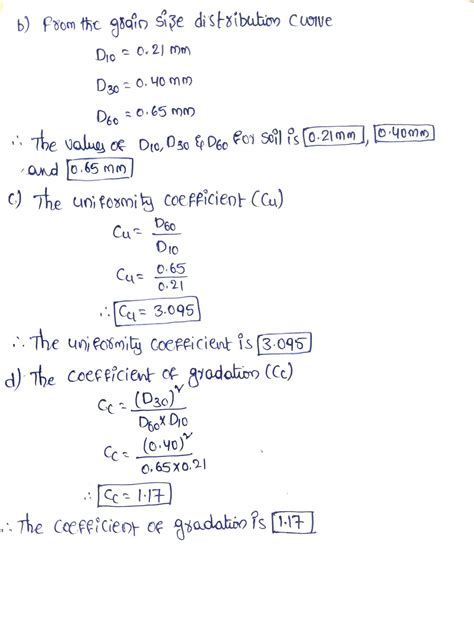 b) From the grain size distribution curve
D10 = 0.21 mm
D30 = 0.40 mm
D60 = 0.65 mm
∴ The values of D10, D30 & D60 for soil is 0.21mm, 0.40mm
and 0.65 mm
c) The uniformity coefficient (Cu)
Cu = D60 / D10
Cu = 0.65 / 0.21
∴ Cu = 3.095
∴ The uniformity coefficient is 3.095
d) The coefficient of gradation (Cc)
Cc = (D30)² / D60 x D10
Cc = (0.40)² / 0.65 x 0.21
∴ Cc = 1.17
∴ The coefficient of gradation is 1.17